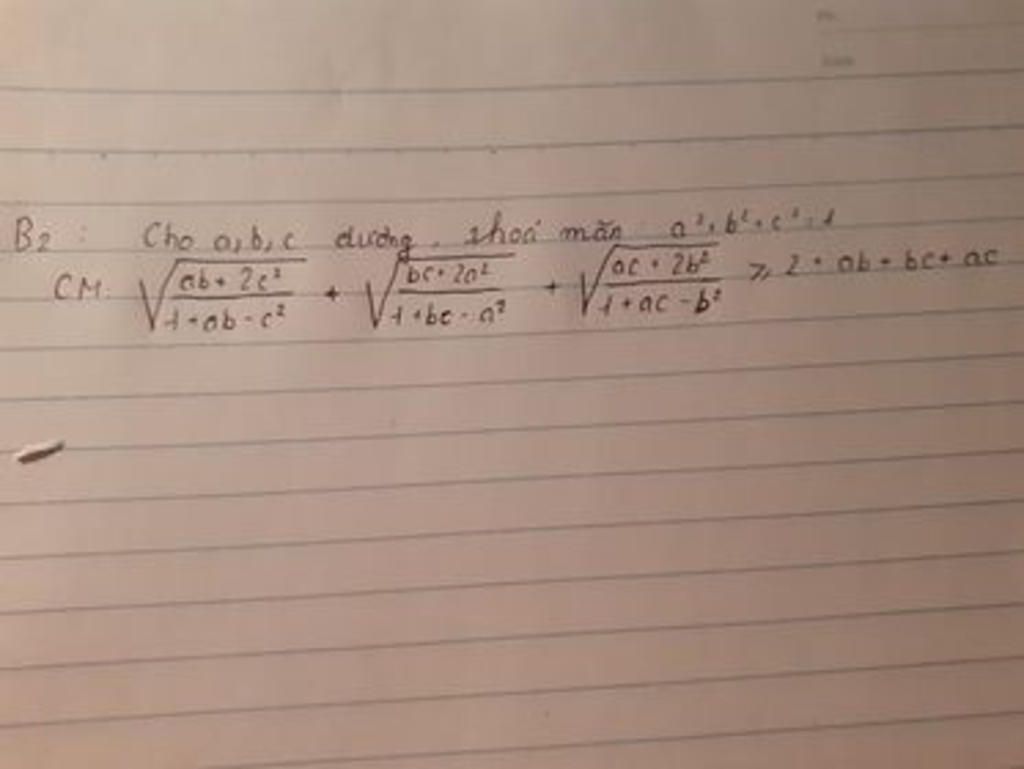 B2 : Cho a,b,c dương, thoả mãn a² + b² + c² = 1
CM. √((ab + 2c²)/(1 + ab - c²)) + √((bc + 2a²)/(1 + bc - a²)) + √((ac + 2b²)/(1 + ac - b²)) ≥ 2 + ab + bc + ac